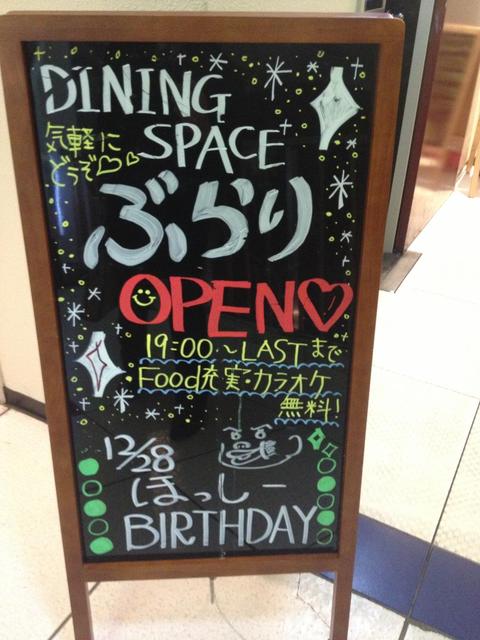 DINING
気軽に
どうぞ♡♡
SPACE
ぶらり
OPEN♡
19:00~LASTまで
Food充実・カラオケ
無料!
12/28
ほっしー
BIRTHDAY